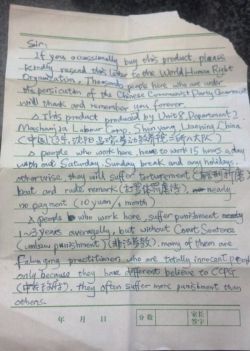 Sir:
If you occasionally buy this product, please
kindly resend this letter to the World Human Right
Organization. Thousands people here who are under
the persicution of the Chinese Communist Party Government
will thank and remember you forever.
This product produced by Unit 8, Department 2
Mashanjia Labour Camp, Shenyang, Liaoning, China
(中国,辽宁,沈阳,马三家劳动教养院二所八大队)
people who work here, have to work 15 hours a day
with out Saturday, Sunday break and any holidays,
otherwise they will suffer torturement
beat and rude remark nearly
no payment (10 yuan / 1 month)
people who work here, suffer punishment
1~3 years averagely, but without Court Sentence
(unlaw punishment) (非法劳教). many of them are
Falun gong practitioner, who are totally innocent people
only because they have different believe to CCPG
they often suffer more punishment than
others.
年 月 日
分数
家长
签字